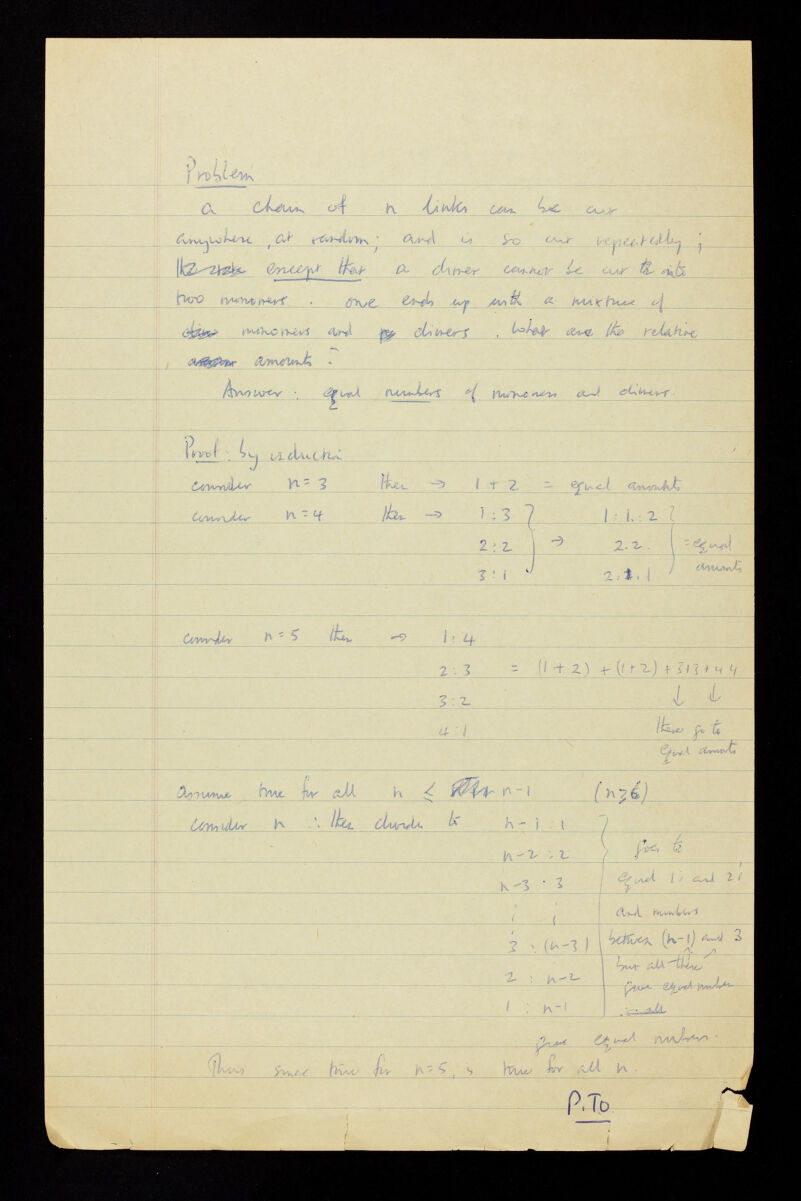 Problem
a chain of n links can be cut
anywhere, at random; and is so cut repeatedly;
except that a dimer cannot be cut into
two monomers. one ends up with a mixture of
monomers and dimers. What are the relative
amounts?
Answer: equal numbers of monomers and dimers.
Proof: by induction
consider n=3 then → 1+2 = equal amounts
consider n=4 then → 1:3 } 1:1:2 }
2:2 → 2.2. = equal
3:1 2:1.1 amounts
consider n=5 then → 1:4
2:3 = (1+2) + (1+2) + 3+3+4 4
3:2 ↓ ↓
4:1 these go to
equal amounts
assume true for all n ≤ n-1 (n≥6)
consider n ∴ then divides to n-1 : 1
n-2 : 2 goes to
n-3 : 3 equal 1s and 2s
and numbers
3 : (n-3) between (n-1) and 3
but all these
2 : n-2 gave equal numbers
1 : n-1
gave equal numbers.
Thus since true for n=5, is true for all n.
P.T.O